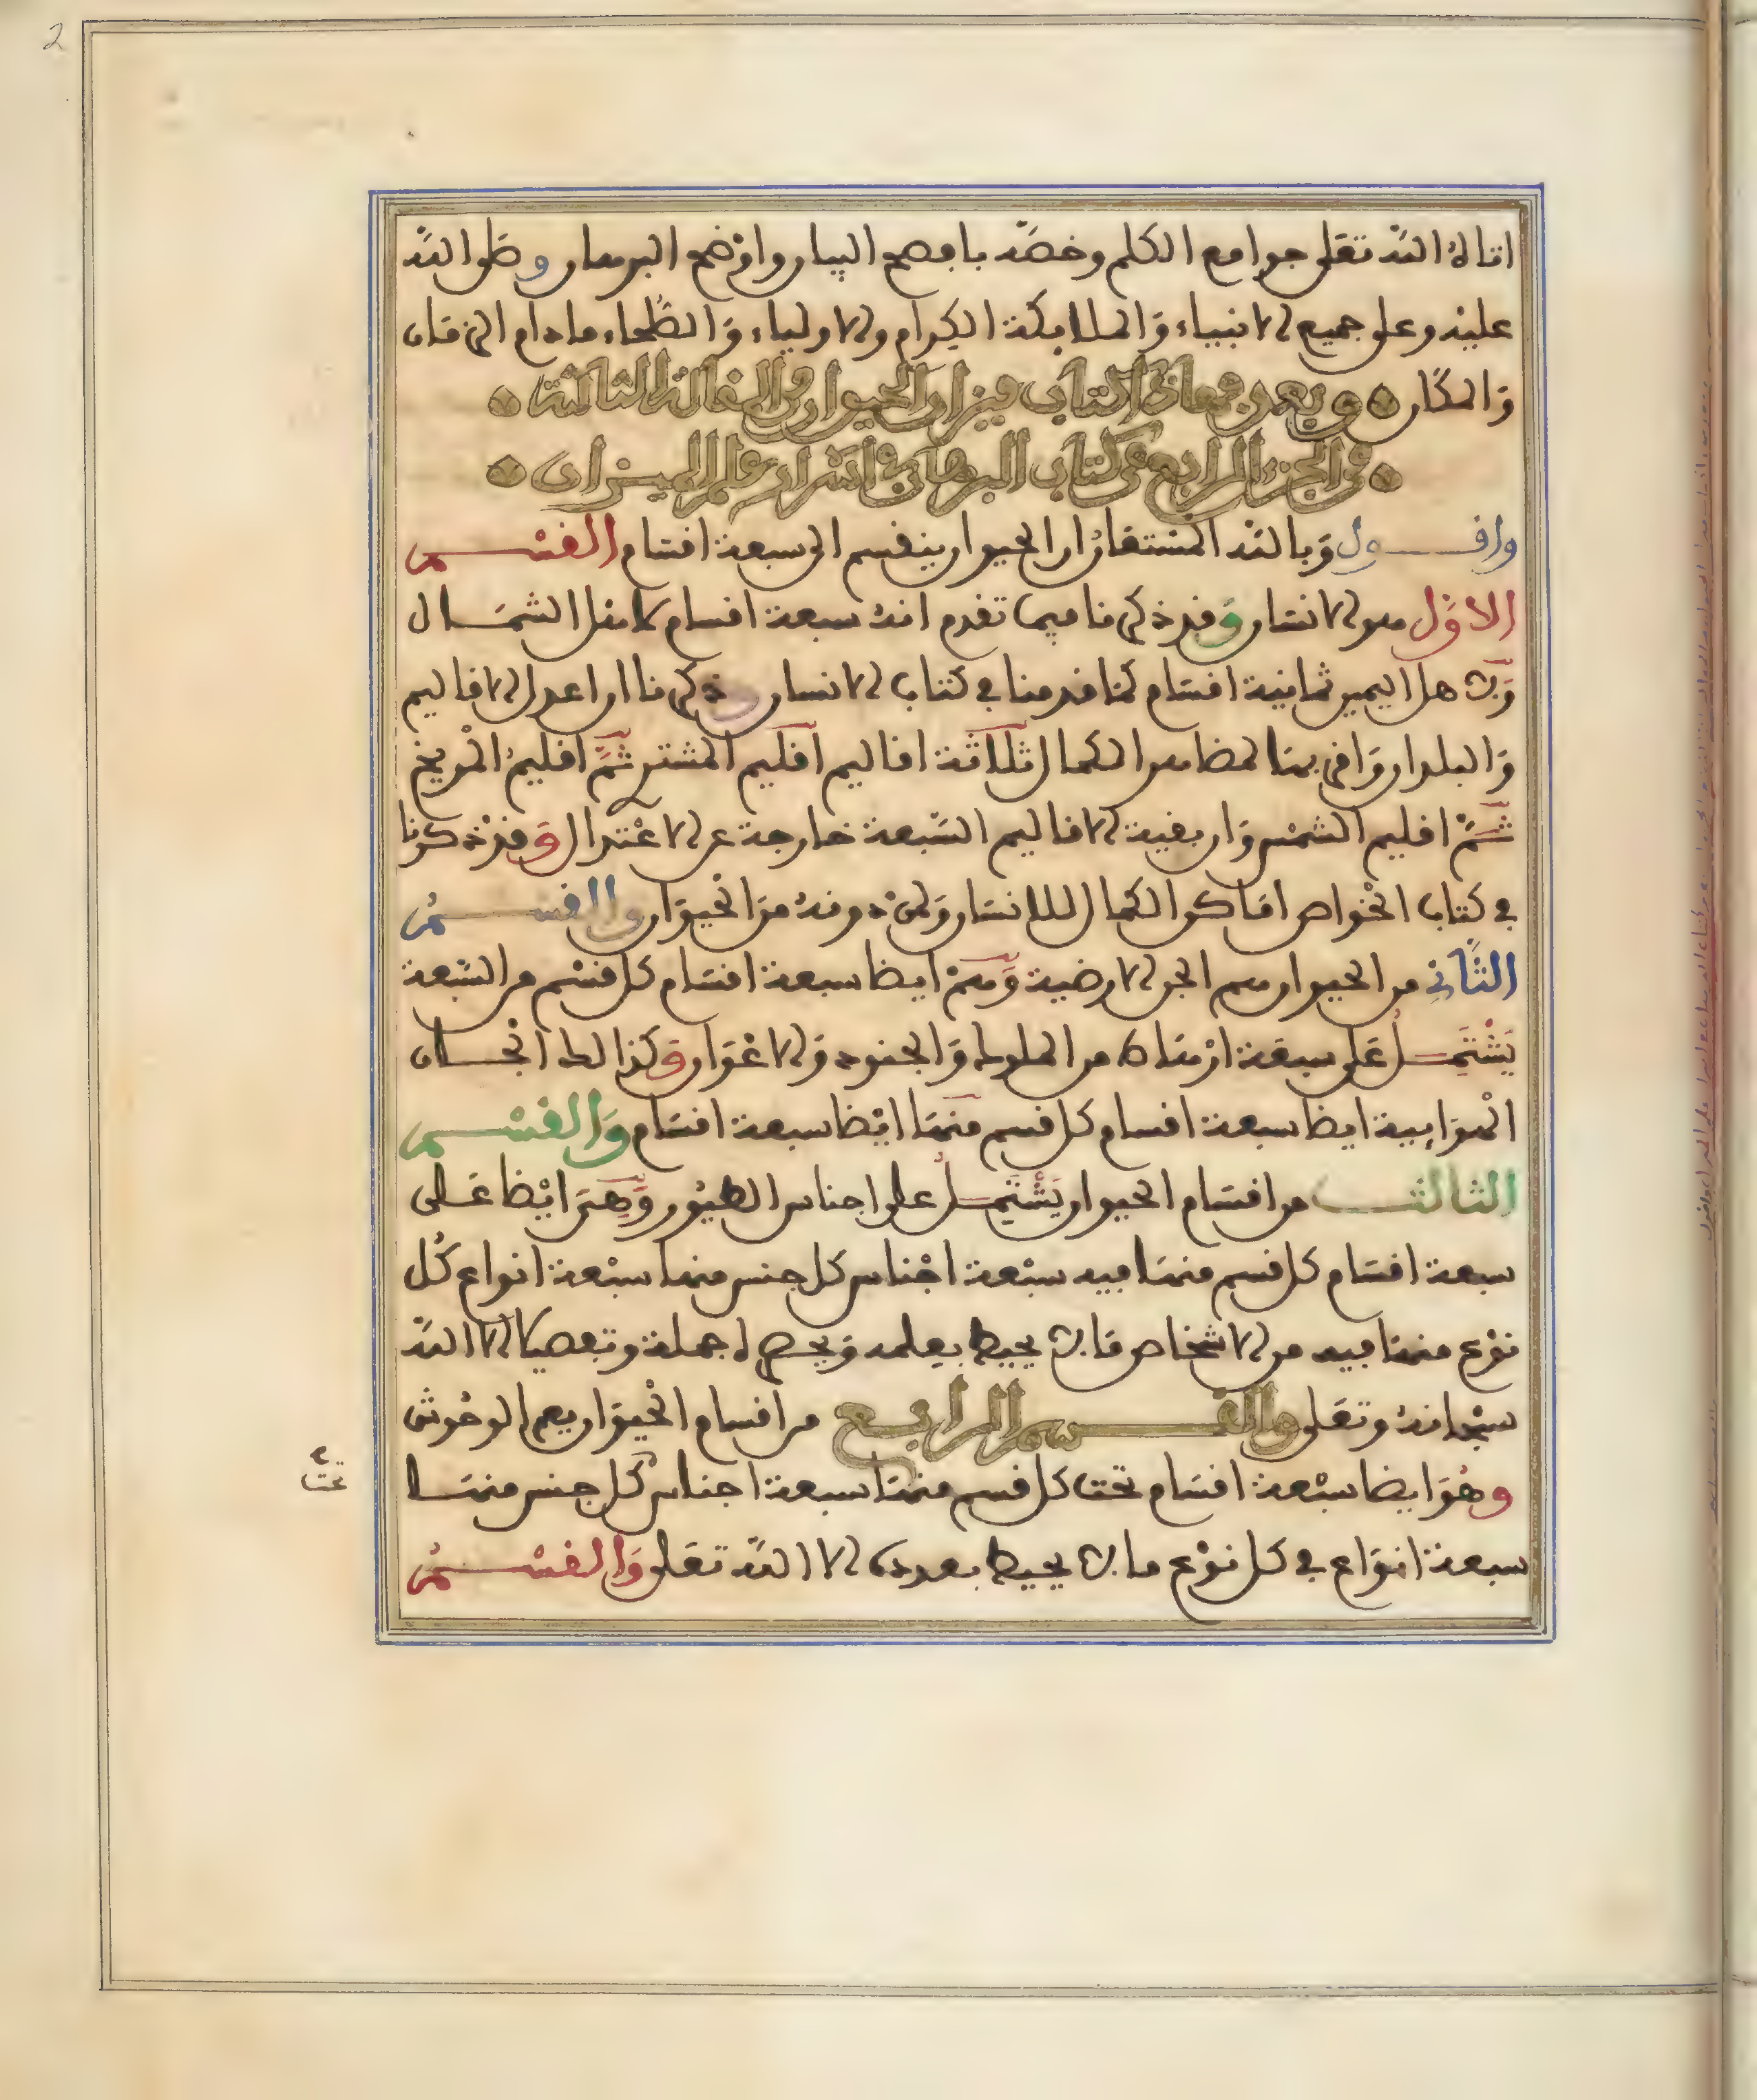 اتاه الله تعلى جوامع الكلم وخصه بافصح البيان واوضح البرهان وصلى الله
عليه وعلى جميع الانبياء والملايكة الكرام والاولياء والصلحاء ما دام الزمان
والمكان وبعد فهاذا كتاب ميزان الحيوان وهي المقالة الثالثة
في الجزء الرابع من كتاب البرهان في اسرار علم الميزان
واقـــول وبالله المستعان ان الحيوان ينقسم الى سبعة اقسام القســـم
الاول هو الانسان وقد ذكرنا فيما تقدم انه سبعة اقسام لاهل الشمـال
ولاهل اليمين ثمانية اقسام كما قدمنا في كتاب الانسان ذكرنا ان اعدل الاقاليم
والبلدان واقربها لمضاهر الكمال ثلاثة اقاليم اقليم المشتري ثم اقليم المريخ
ثم اقليم الشمس وان بقية الاقاليم السبعة خارجة عن الاعتدال وقد ذكرنا
في كتاب الخواص اماكن الكمال للانسان ولمن دونه من الحيوان والقســـم
الثاني من الحيوان هم الجن الارضية وهم ايضا سبعة اقسام كل قسم من السبعة
يشتمـل على سبعة ارهاط من الملوك والجنود والاعوان وكذالك الجـان
الهوايية ايضا سبعة اقسام كل قسم منها ايضا سبعة اقسام والقســـم
الثالـــث من اقسام الحيوان يشتمـل على اجناس الطيور وهي ايضا عـلى
سبعة اقسام كل قسم منها فيه سبعة اجناس كل جنس منها سبعة انواع كل
نوع منها فيه من الاشخاص ما لا يحيط بعلمه ويحصيه جملة وتفصيلا الا الله
سبحانه وتعلى والقـــسم الرابـع من اقسام الحيوان يعم الوحوش
وهو ايضا سبعة اقسام تحت كل قسم منها سبعة اجناس كل جنس منهـا
سبعة انواع في كل نوع ما لا يحيط بعدده الا الله تعلى والقســـم
تحت
2